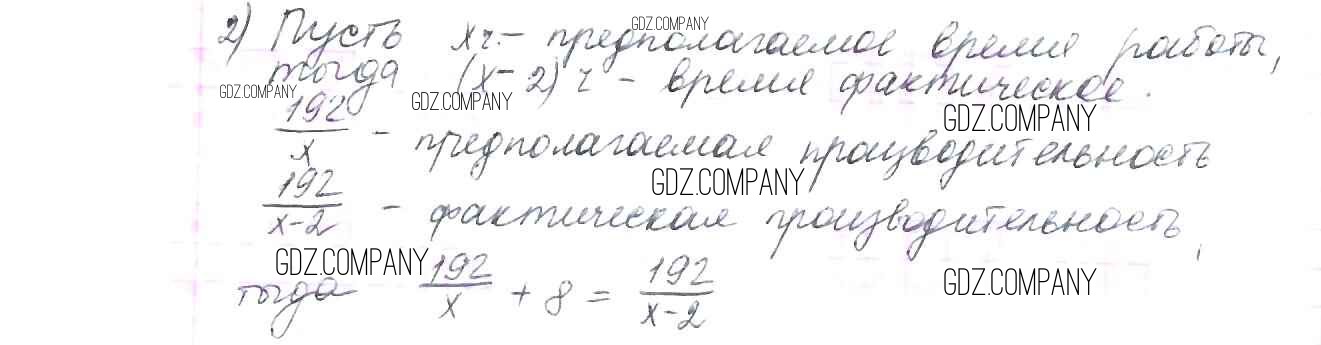 GDZ.COMPANY
2) Пусть x ч. – предполагаемое время работы,
тогда (x – 2) ч – время фактическое.
GDZ.COMPANY GDZ.COMPANY GDZ.COMPANY
192/x – предполагаемая производительность
GDZ.COMPANY
192/(x-2) – фактическая производительность,
GDZ.COMPANY GDZ.COMPANY
тогда 192/x + 8 = 192/(x-2)